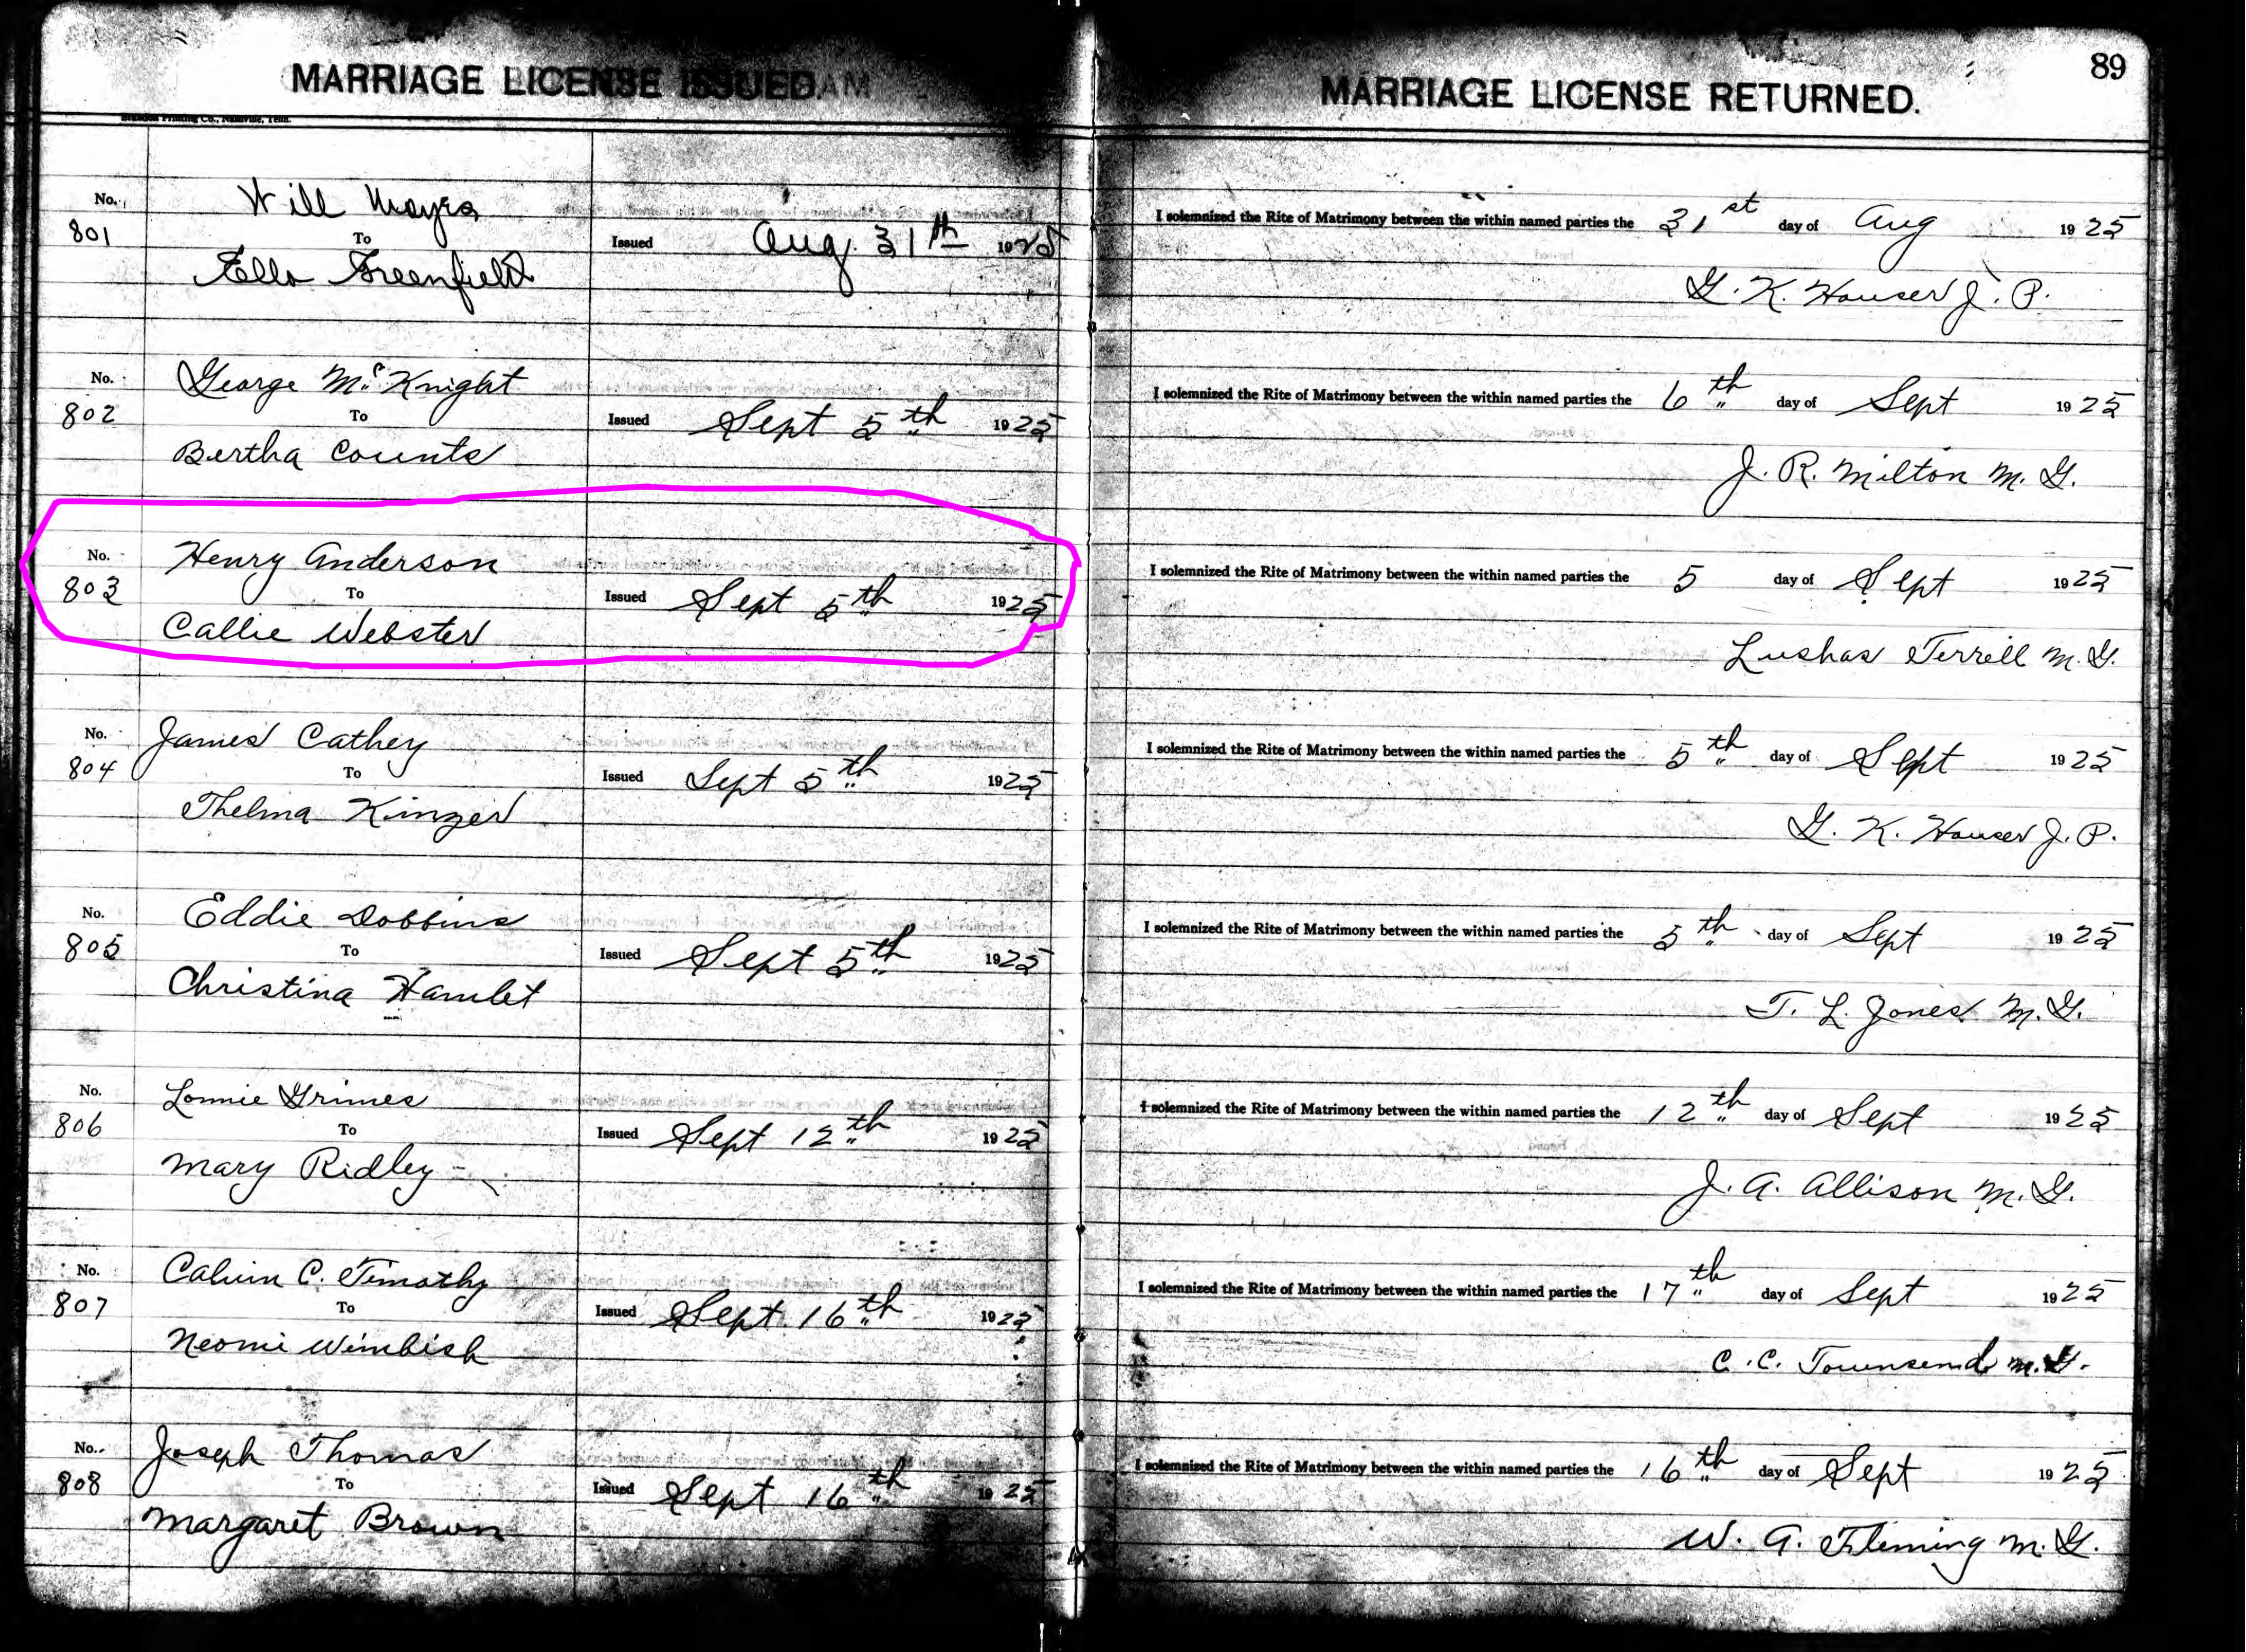 MARRIAGE LICENSE ISSUED.
Brandon Printing Co., Nashville, Tenn.
No. 801
Will Mayes
To
Ella Greenfield
Issued Aug. 31th 1925
No. 802
George McKnight
To
Bertha Counts
Issued Sept 5th 1925
No. 803
Henry Anderson
To
Callie Webster
Issued Sept 5th 1925
No. 804
James Cathey
To
Thelma Kinzer
Issued Sept 5th 1925
No. 805
Eddie Dobbins
To
Christina Hamlet
Issued Sept 5th 1925
No. 806
Lonnie Grimes
To
Mary Ridley
Issued Sept 12th 1925
No. 807
Calvin C. Timothy
To
Neomi Wimbish
Issued Sept. 16th 1925
No. 808
Joseph Thomas
To
Margaret Brown
Issued Sept 16th 1925
89
MARRIAGE LICENSE RETURNED.
I solemnized the Rite of Matrimony between the within named parties the 31st day of Aug 1925
G. K. Houser J. P.
I solemnized the Rite of Matrimony between the within named parties the 6th day of Sept 1925
J. R. Milton M. G.
I solemnized the Rite of Matrimony between the within named parties the 5 day of Sept 1925
Lushas Terrell M. G.
I solemnized the Rite of Matrimony between the within named parties the 5th day of Sept 1925
G. K. Houser J. P.
I solemnized the Rite of Matrimony between the within named parties the 5th day of Sept 1925
T. L. Jones M. G.
I solemnized the Rite of Matrimony between the within named parties the 12th day of Sept 1925
J. A. Allison M. G.
I solemnized the Rite of Matrimony between the within named parties the 17th day of Sept 1925
C. C. Townsend M. G.
I solemnized the Rite of Matrimony between the within named parties the 16th day of Sept 1925
W. A. Fleming M. G.